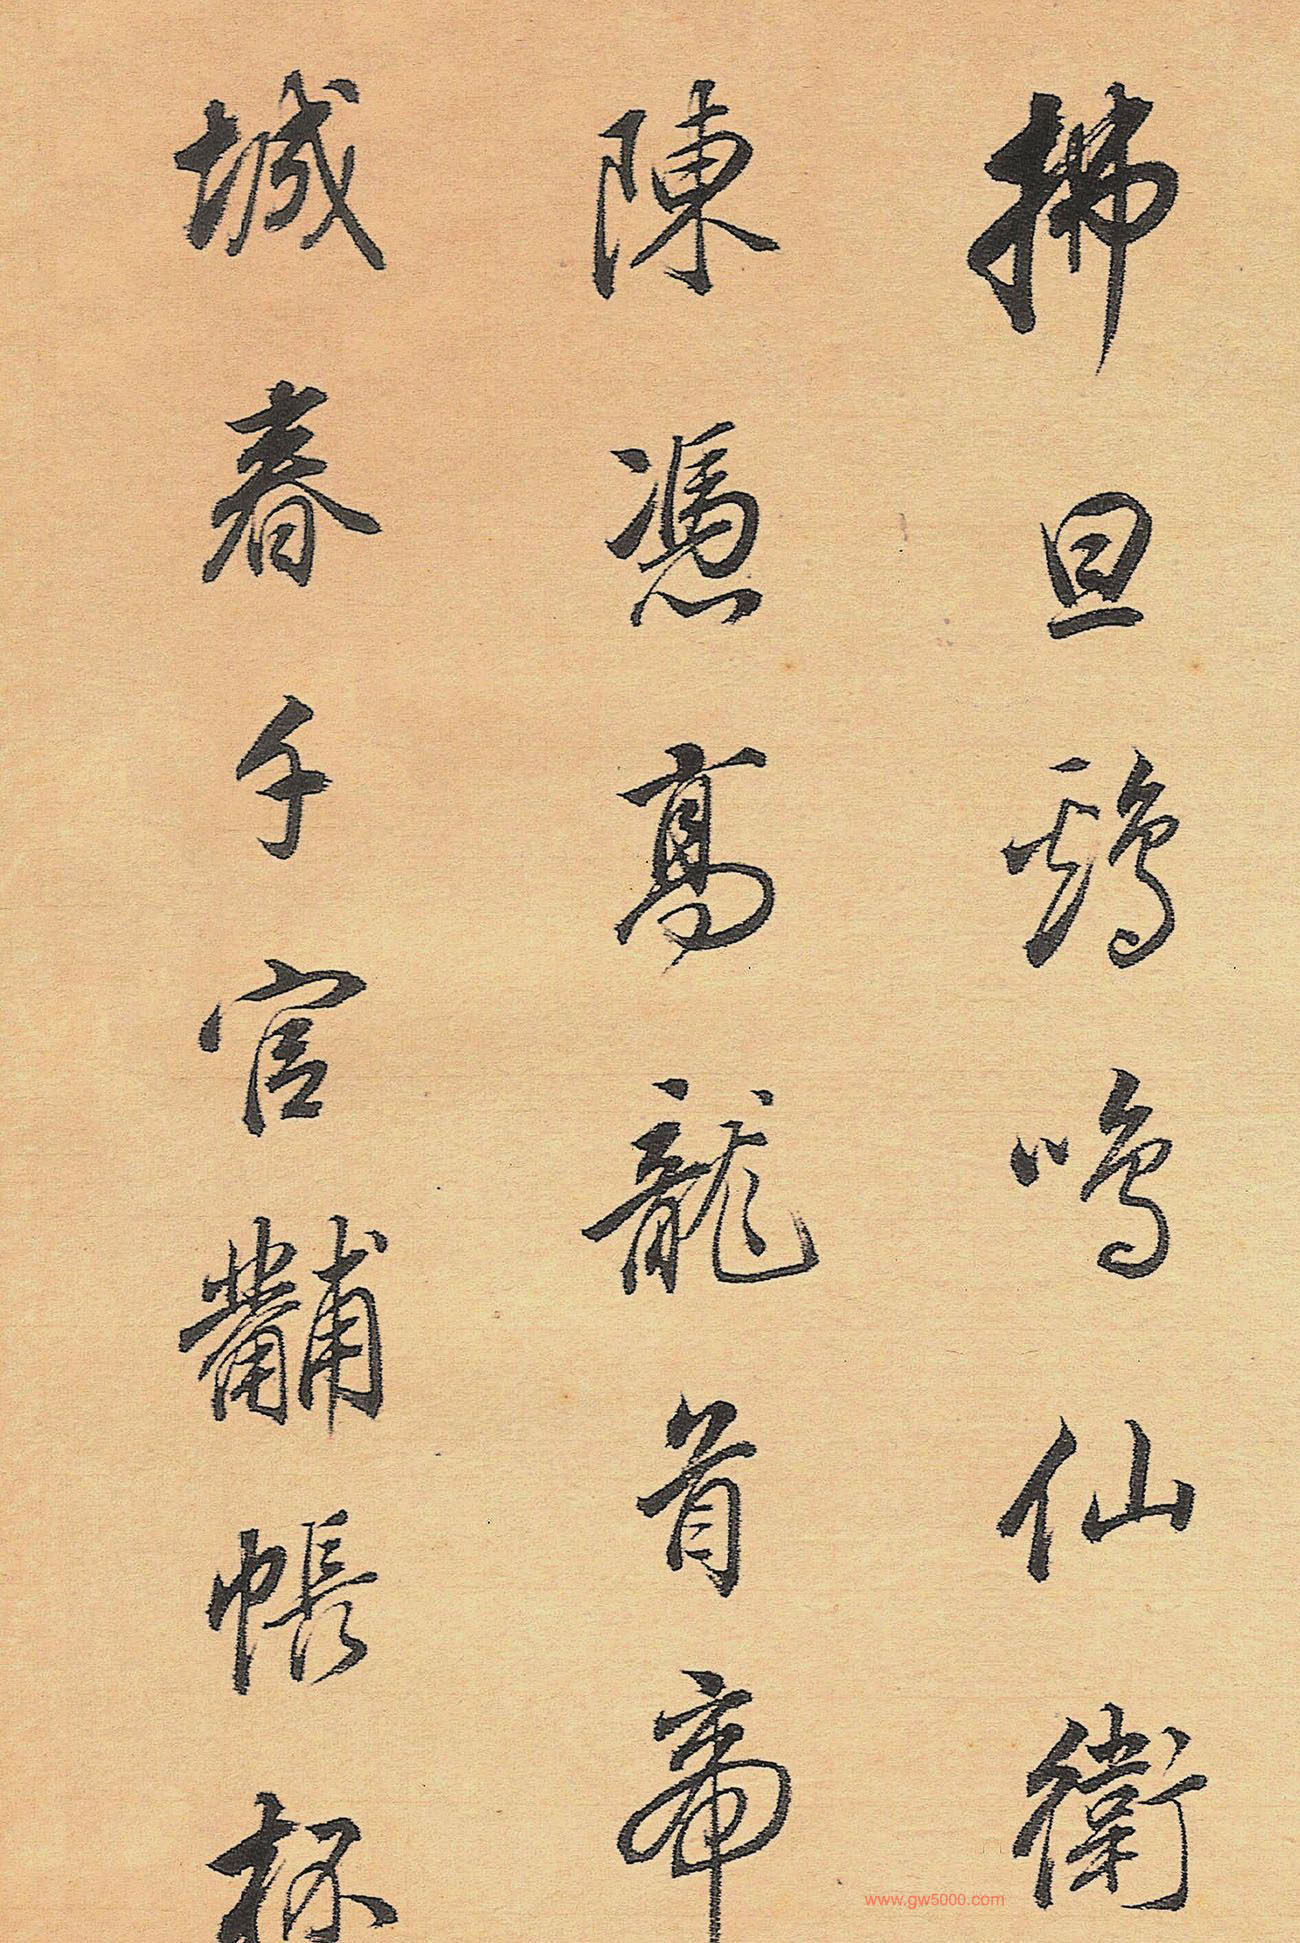 拂旦鷄鳴仙衛
陳憑高龍首帝
城春千官黼帳杯
www.gw5000.com